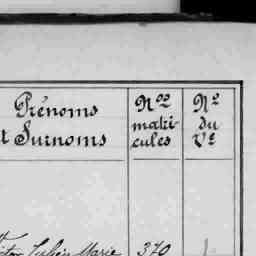 Prénoms
et Surnoms
Nos
matri-
cules
No
du
Vt
Marie 370